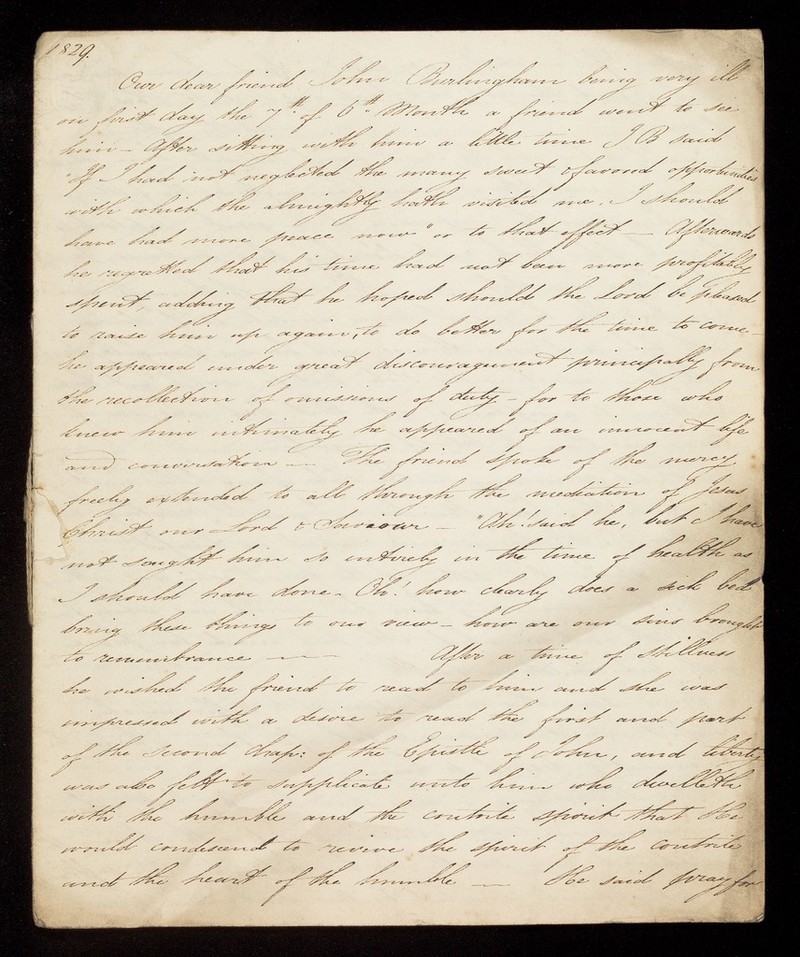 1829.
Our dear friend John Burlingham being very ill
on first day the 7th. of 6th Month a friend went to see
him - After sitting with him a little time J B said
"If I had not neglected the many sweet & favored opportunities
with which the almighty hath visited me. I should
have had more peace now" or to that effect - Afterwards
he regretted that his time had not been more profitably
spent, adding that he hoped should the Lord be pleased
to raise him up again, to do better for the time to come -
he appeared under great discouragement principally from
the recollection of omissions of duty - for to those who
knew him intimately he appeared of an innocent life
and conversation - The friend spoke of the mercy
freely extended to all through the mediation of Jesus
Christ our Lord & Saviour - "Ah! said he, but I have
not sought him so entirely in the time of health as
I should have done - Oh! how clearly does a sick bed
bring these things to our view - how are our sins brought
to remembrance - - - After a time of stillness
he wished the friend to read to him and she was
impressed with a desire to read the first and part
of the second chap: of the Epistle of John, and liberty
was also felt to supplicate unto him who dwelleth
with the humble and the contrite spirit that He
would condescend to revive the spirit of the contrite
and the heart of the humble - He said pray for